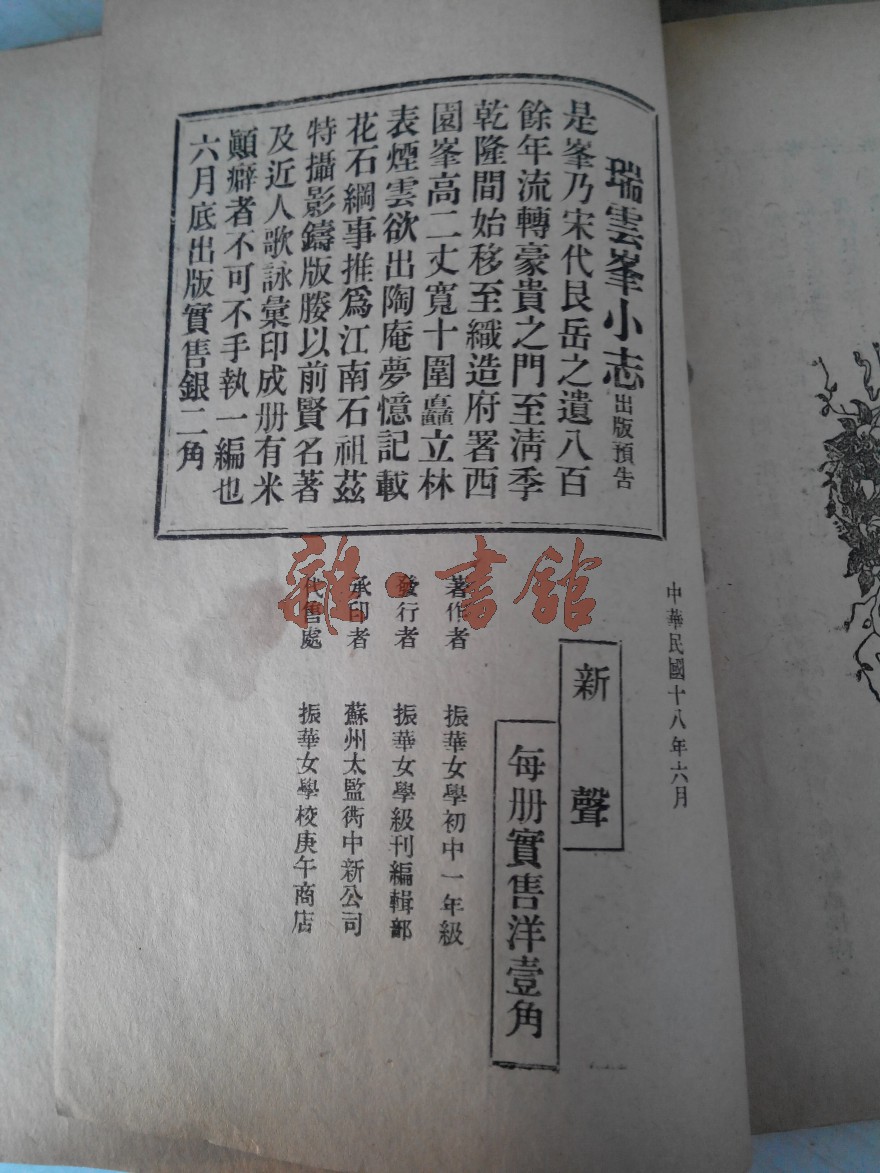 瑞雲峯小志 出版預告
是峯乃宋代艮岳之遺八百
餘年流轉豪貴之門至淸季
乾隆間始移至織造府署西
園峯高二丈寬十圍矗立林
表煙雲欲出陶庵夢憶記載
花石綱事推爲江南石祖茲
特攝影鑄版媵以前賢名著
及近人歌詠彙印成册有米
顚癖者不可不手執一編也
六月底出版實售銀二角
中華民國十八年六月
新聲
每册實售洋壹角
著作者 振華女學初中一年級
發行者 振華女學級刊編輯部
承印者 蘇州太監衖中新公司
代售處 振華女學校庚午商店
雜·書館